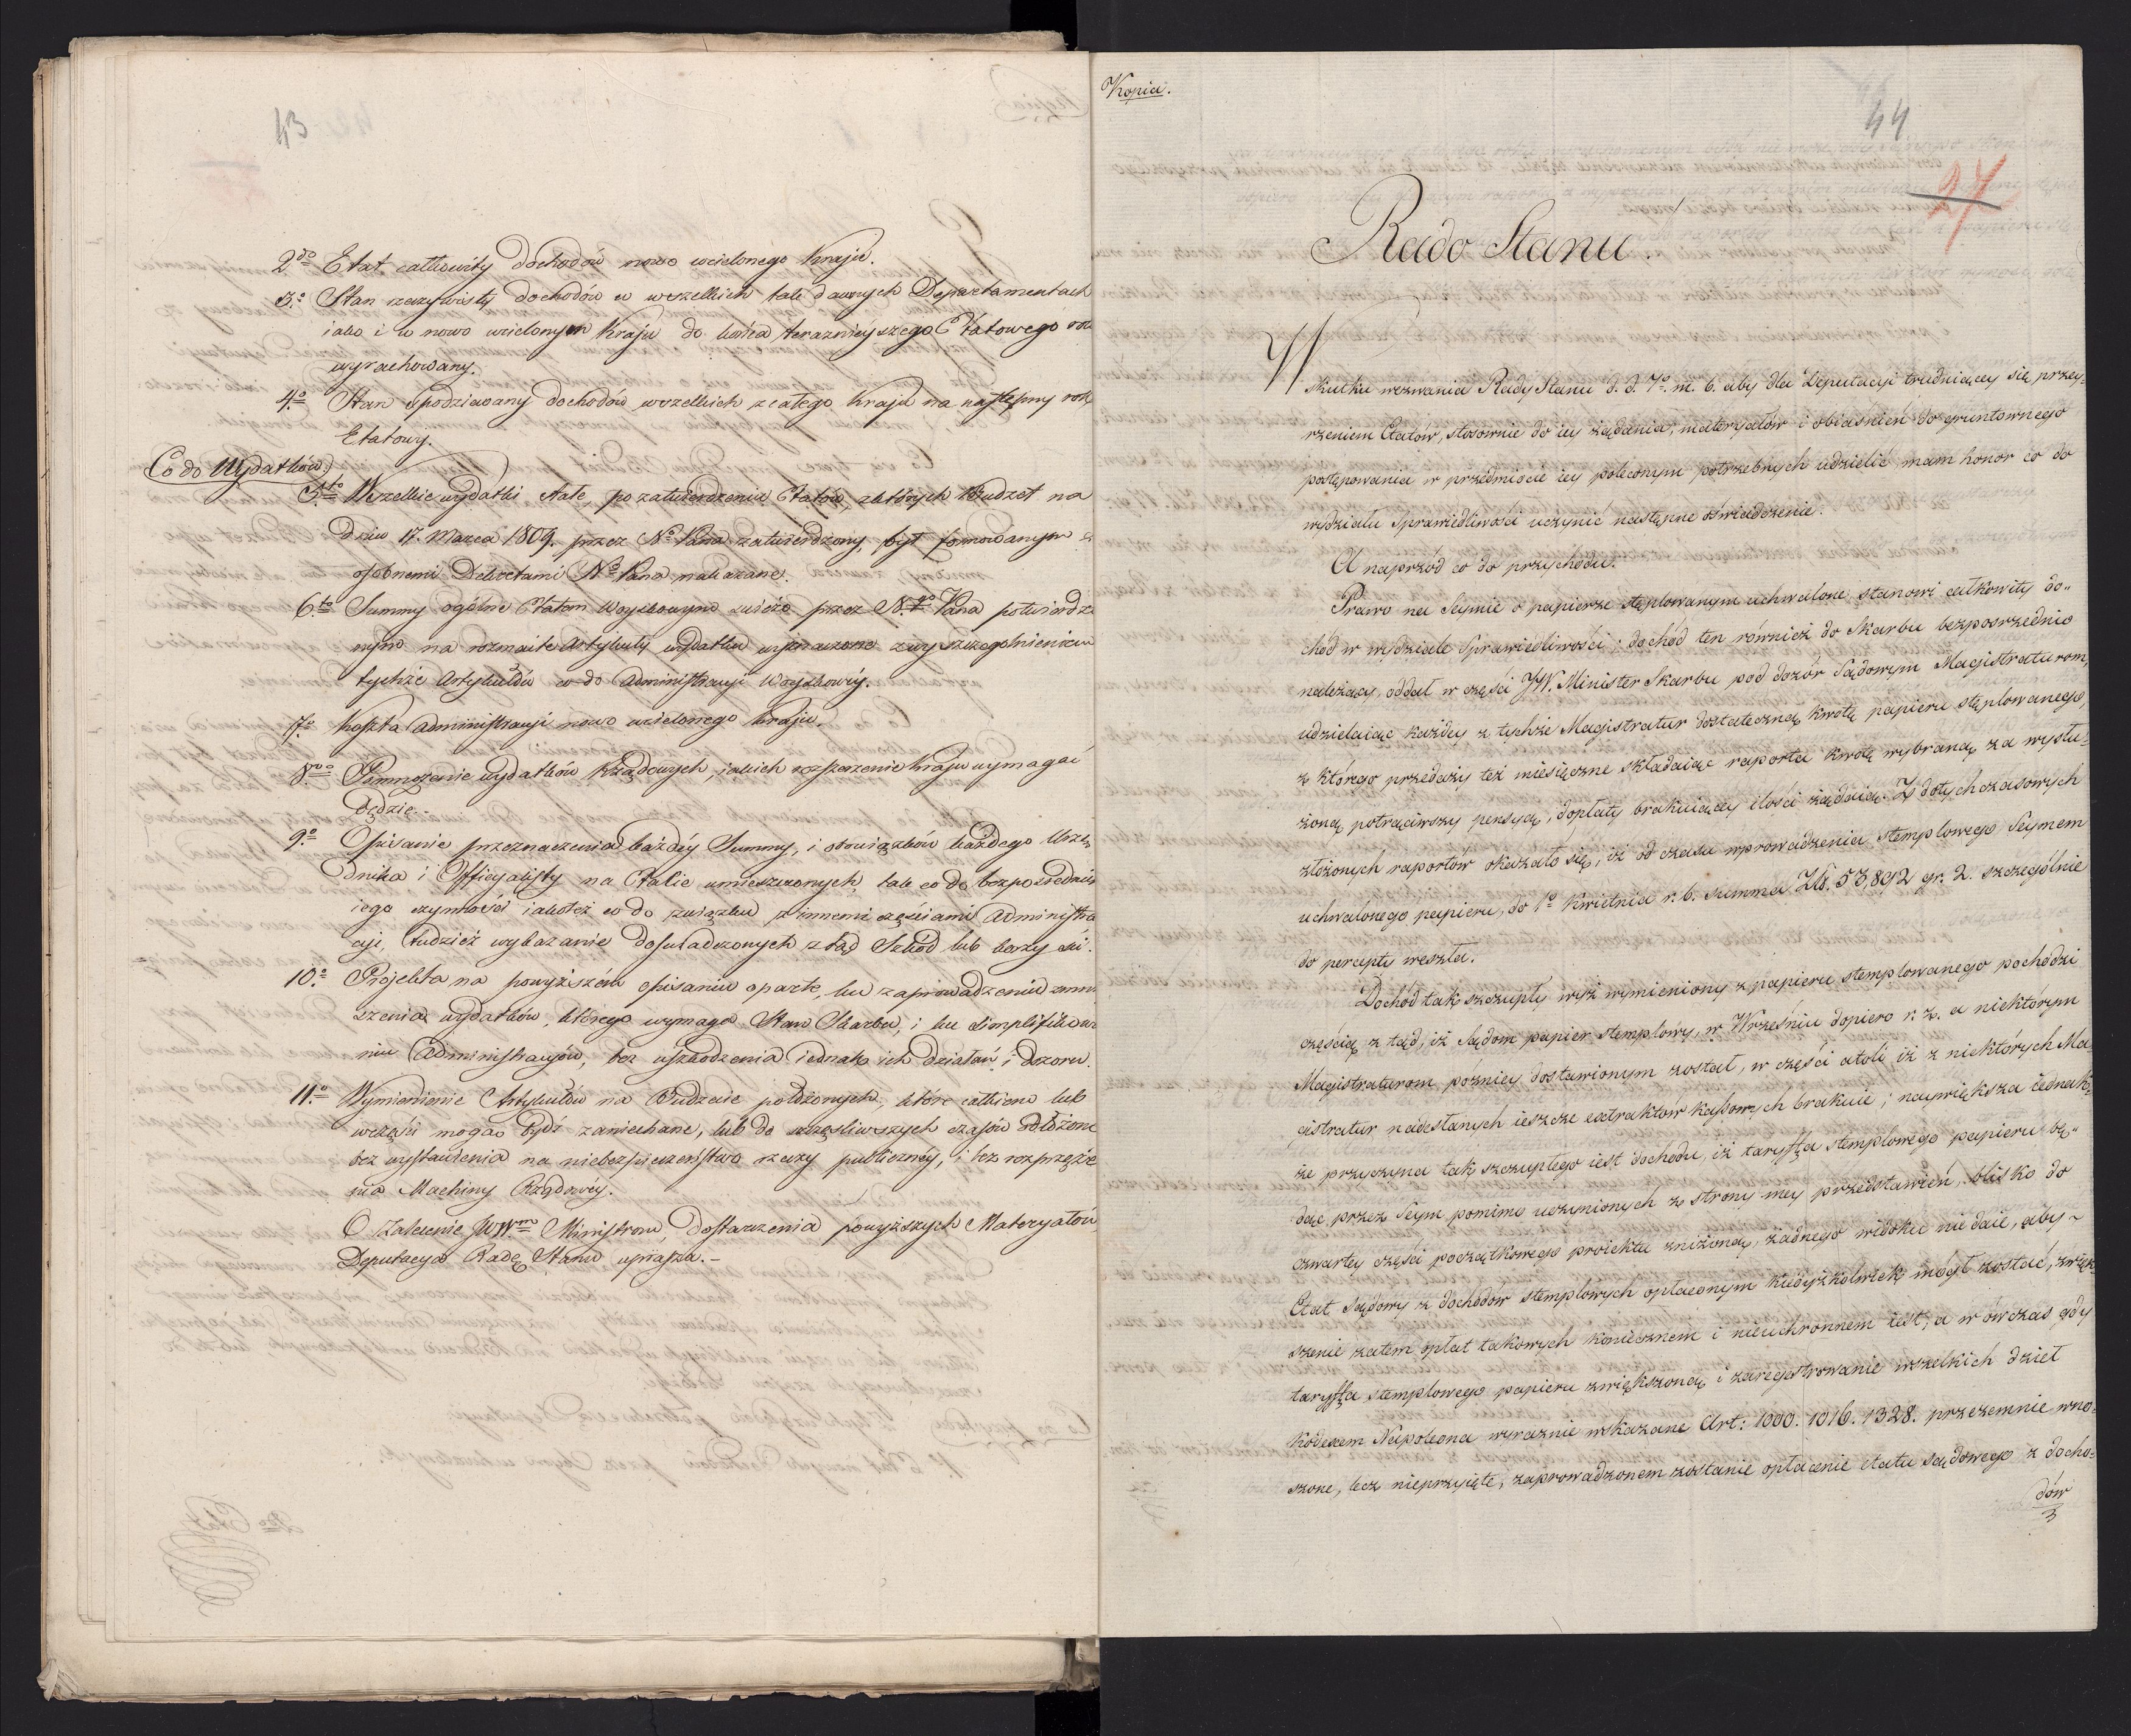 43
2do Etat całkowity dochodów nowo wcielonego Kraju.
3o Stan rzeczywisty dochodów w wszelkich tak dawnych Departamentach
iako i w nowo wcielonym Kraju do końca teraznieyszego Etatowego rok
wyrachowany.
4o Stan spodziewany dochodów wszelkich z całego Kraju na następny rok
Etatowy.
Co do Wydatków.
5to Wszelkie wydatki stałe, po zatwierdzeniu Etatów, z których Budżet na
dniu 17. Marca 1809. przez No Pana zatwierdzony, był formowanym
osobnemi Dekretami No Pana nakazane.
6to Summy ogólne Etatem Woyskowym świeżo przez N.go Pana potwierdzo
nym na rozmaite Artykuły wydatku wyznaczone z wyszczególnieniem
tychże Artykułów co do Administracyi Woyskowey.
7o Koszta Administracyi nowo wcielonego Kraju.
8vo Pomnożenie wydatków Rządowych, iakich rozszerzenie Kraju wymagać
będzie.-
9o Opisanie przeznaczenia każdey Summy, i obowiązków każdego Urzę
dnika i Officyalisty na Etacie umieszczonych, tak co do bezpośrednie
iego czynności iakoteż co do związku z innemi częściami Administra
cyi, tudzież wykazanie doświadczonych ztąd Szkód lub korzyści.
10o Projekta na powyższém opisaniu oparte, ku zaprowadzeniu zmniey
szenia wydatków, którego wymaga Stan Skarbu, i ku Simplifikowa
niu Administracyów, bez uszkodzenia iednak ich działań i dozoru.
11o Wymienienie Artykułów na Budżecie położonych, które całkiem lub
w części mogą bydź zaniechane, lub do szczęśliwszych czasów odłożone
bez wystawienia na niebezpieczeństwo rzeczy publiczney, i bez rozprzęże
nia Machiny Rządowey.
O Zalecenie JWWm Ministrom, dostarczenia powyższych Materyałów
Deputacya Radę Stanu uprasza.-
Kopia.
44
27
Rado Stanu!
W
skutku wezwania Rady Stanu d. d. 7o m. b. aby dla Deputacyi trudniącey się przey-
rzeniem Etatów, stosownie do iey żądania, materyałów i obiaśnień do gruntownego
postępowania w przedmiocie iey poleconym potrzebnych udzielić mam honor co do
wydziału Sprawiedliwości uczynić następne oświadczenie.
A naprzód co do przychodu.
Prawo na Seymie o papierze stęplowanym uchwalone, stanowi całkowity do„
chód w wydziale Sprawiedliwości; dochód ten również do Skarbu bezpośrednio
należący, oddał w części JW. Minister Skarbu pod dozór Sądowym Magistraturom,
udzielaiąc każdey z tychże Magistratur dostateczną kwotę papieru stęplowanego,
z którego przedaży też miesięczne składaiąc raporta kwotę wybraną za wysłu-
żoną potrąciwszy pensyą, dopłaty brakuiącey ilości żądaią. Z dotychczasowych
złożonych raportów okazało się, iż od czasu wprowadzenia stemplowego Seymem
uchwalonego papieru, do 1o Kwietnia r. b. summa Złt. 53,892 gr. 2. szczególnie
do percepty weszła.
Dochód tak szczupły wyż wymieniony z papieru stemplowanego pochodzi
częścią z tąd, iż Sądom papier stemplowy, w Wrześniu dopiero r. z. a niektórym
Magistraturom pozniey dostawionym został, w części atoli, iż z niektórych Ma-
gistratur nadesłanych ieszcze extraktów kassowych brakuie; naywiększa iednak-
że przyczyna tak szczupłego iest dochodu, iż taryffa stemplowego papieru bę„
dąc przez Seym pomimo uczynionych z strony mey przedstawień, blisko do
czwartey części początkowego proiektu zniżoną, żadnego widoku nie daie, aby
Etat Sądowy z dochodów stemplowych opłaconym kiedyżkolwiek mógł zostać, zwięk-
szenie zatem opłat takowych koniecznem i nieuchronnem iest, a w ówczas gdy
taryffa stemplowego papieru zwiększoną, i zaregestrowanie wszelkich dzieł
Kodexem Napoleona wyraznie wskazane Art: 1000. 1016. 1328. przezemnie wno-
szone, lecz nieprzyięte, zaprowadzonem zostanie opłacenie etatu sądowego z docho-
dów